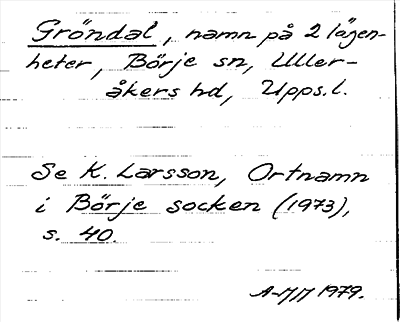 Gröndal, namn på 2 lägen-
heter, Börje sn, Uller-
åkers hd, Upps.l.
Se K. Larsson, Ortnamn
i Börje socken (1973),
s. 40.
A-MM 1979.